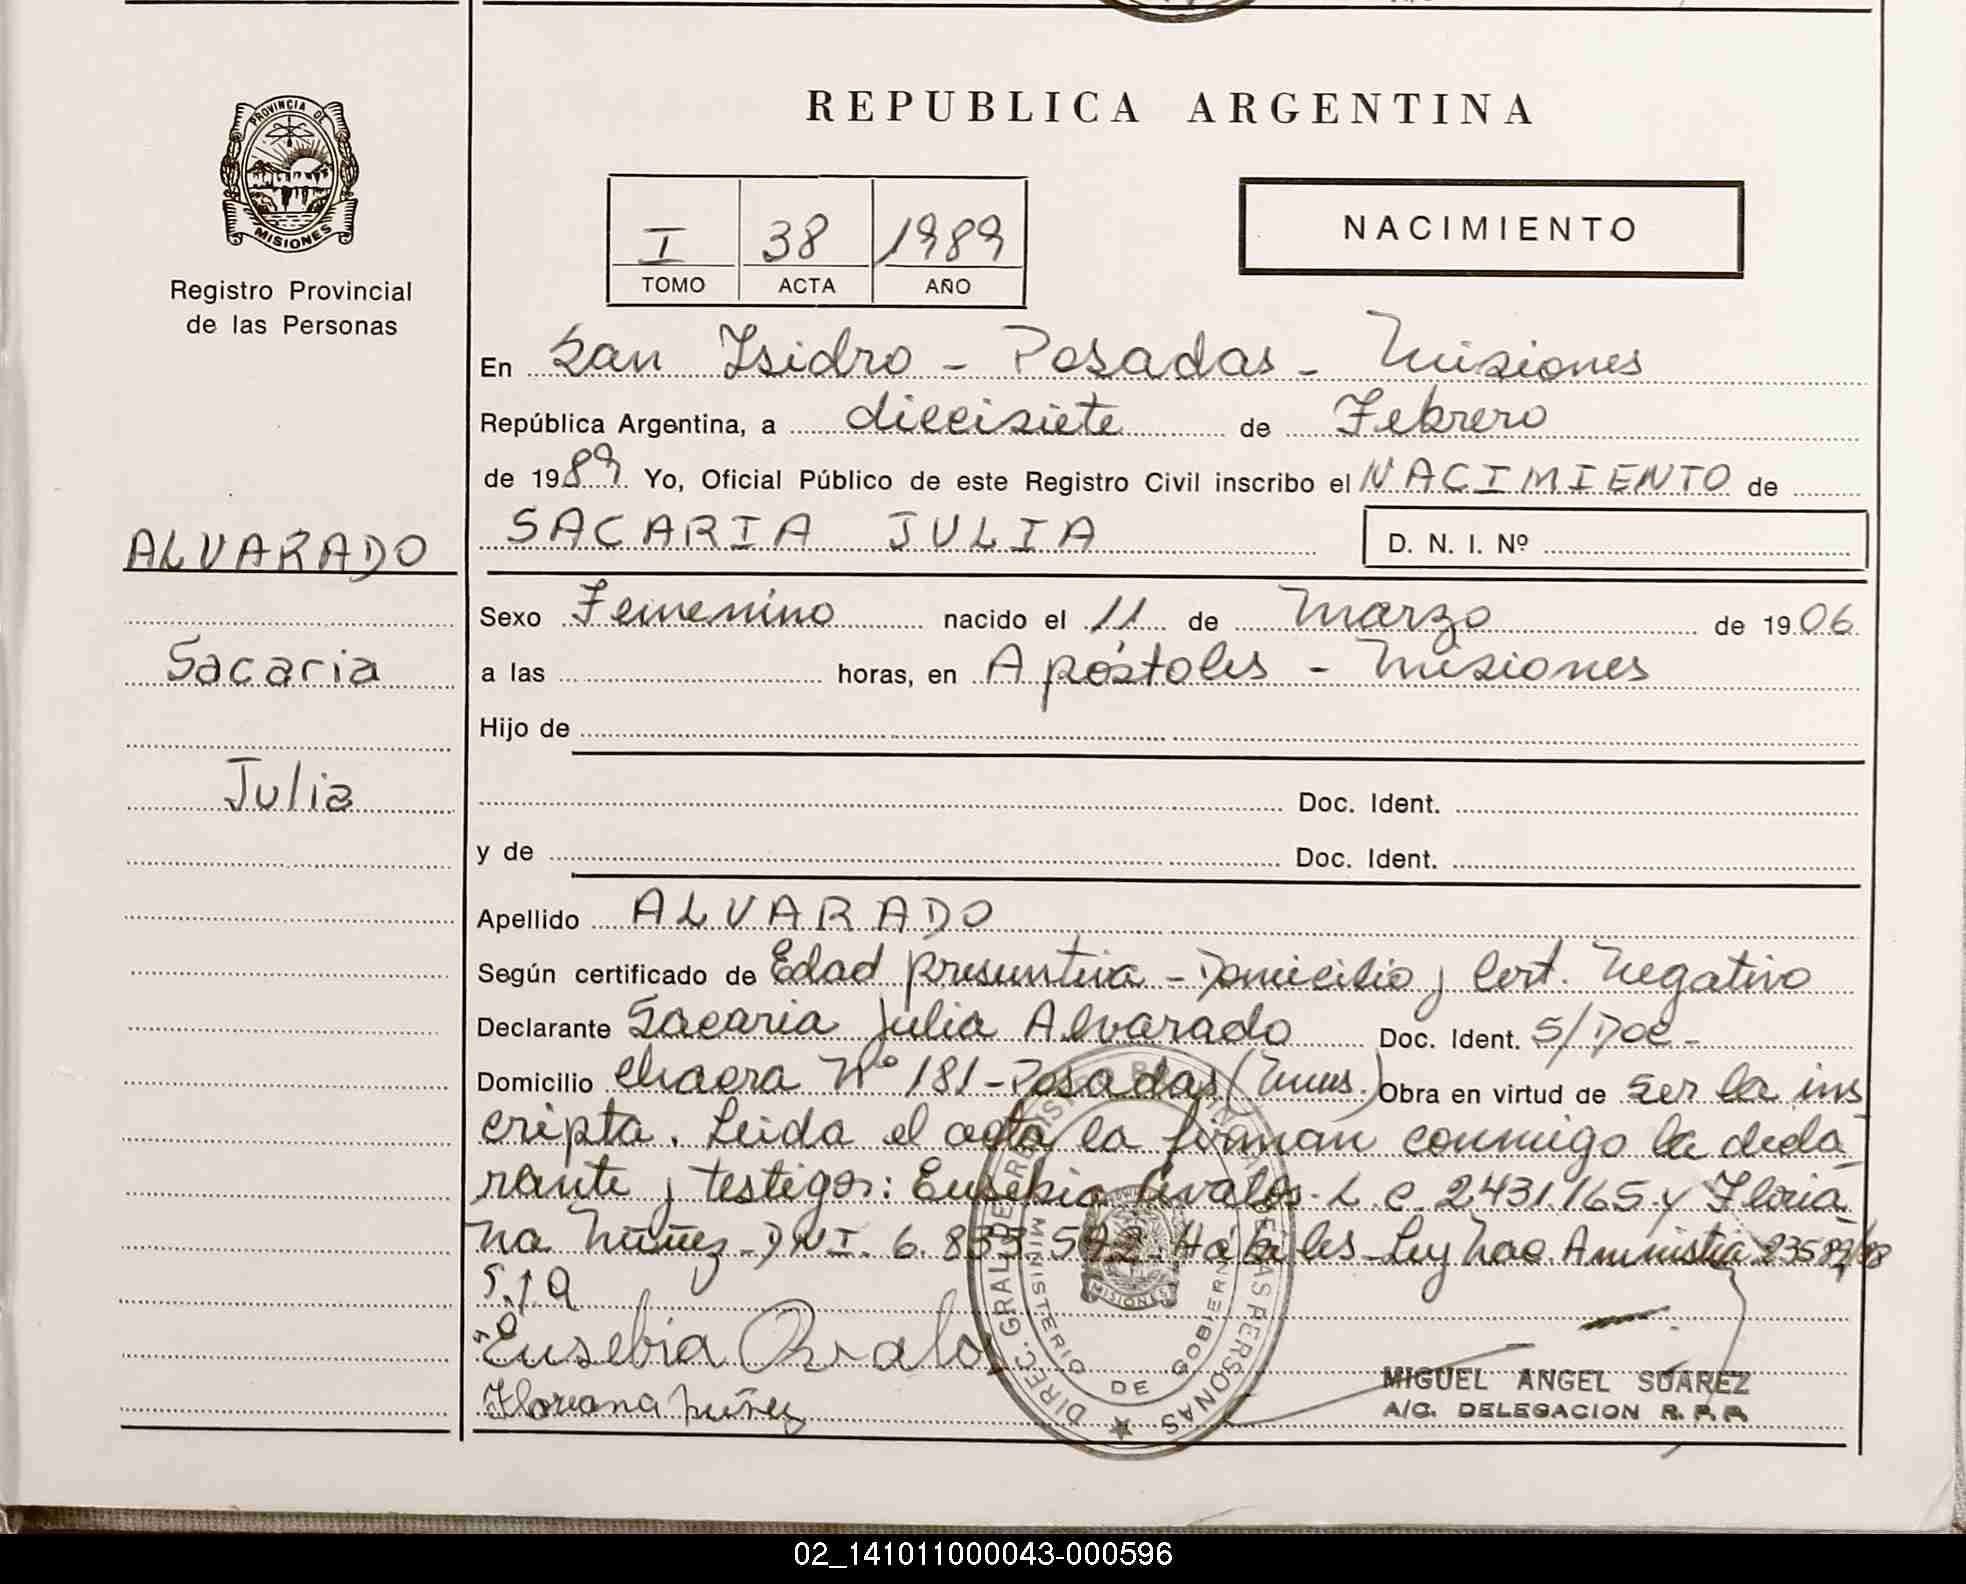 PROVINCIA DE
MISIONES
Registro Provincial
de las Personas
ALVARADO
Sacaria
Julia
REPUBLICA ARGENTINA
I 38 1989
TOMO ACTA AÑO
NACIMIENTO
En San Isidro - Posadas - Misiones
República Argentina, a diecisiete de Febrero
de 1989 Yo, Oficial Público de este Registro Civil inscribo el NACIMIENTO de
SACARIA JULIA D. N. I. Nº
Sexo Femenino nacido el 11 de Marzo de 1906
a las horas, en Apóstoles - Misiones
Hijo de
Doc. Ident.
y de Doc. Ident.
Apellido ALVARADO
Según certificado de Edad presuntiva - Domicilio y Cert. Negativo
Declarante Sacaria Julia Alvarado Doc. Ident. S/Doc -
Domicilio Chacra Nº 181 - Posadas (Mnes.) Obra en virtud de ser la ins
cripta. Leida el acta la firman conmigo la decla
rante y testigos: Eusebia Avalos - L.C. 2431.165 y Floria
na Núñez - DNI. 6.833.592 - Hábiles - Ley Nac. Amnistia
Eusebia Ovalo
Floreana Núñez
DIREC. GRAL. DE REGISTRO PROVINCIAL DE LAS PERSONAS
MINISTERIO DE GOBIERNO
MISIONES
MIGUEL ANGEL SUAREZ
A/C. DELEGACION R. P. P.
02_141011000043-000596